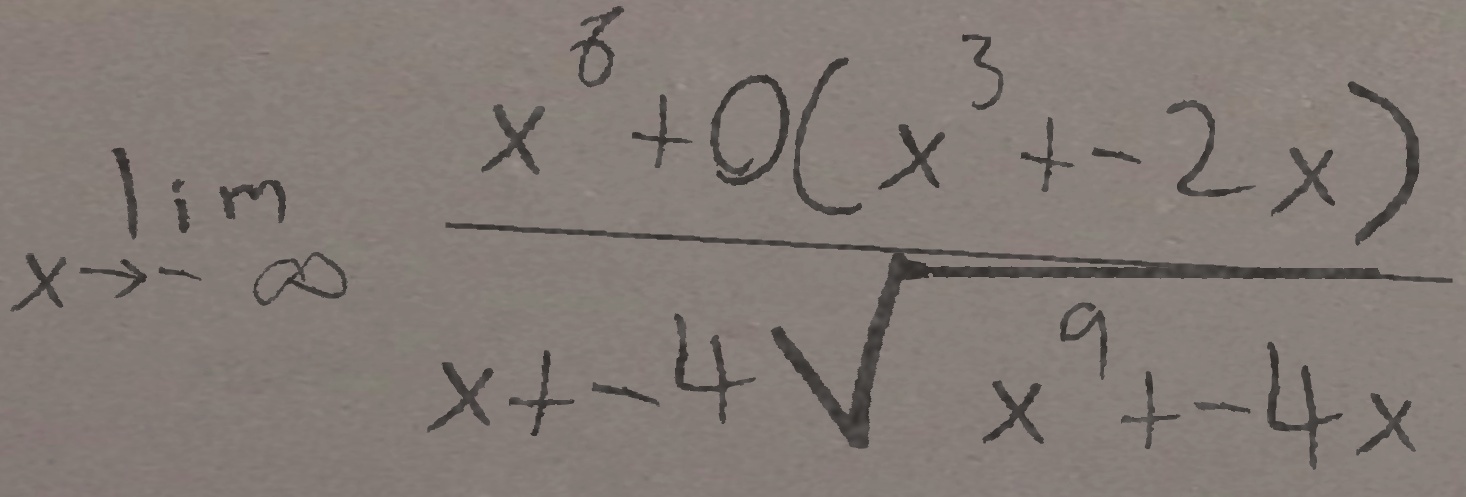 \lim_{x \to -\infty} \frac{x^8 + 0(x^3 + -2x)}{x + -4\sqrt{x^9 + -4x}}